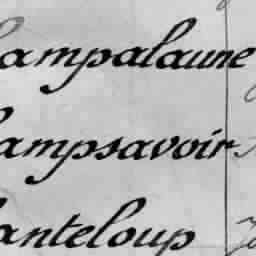 ampalaune
ampsavoir
anteloup